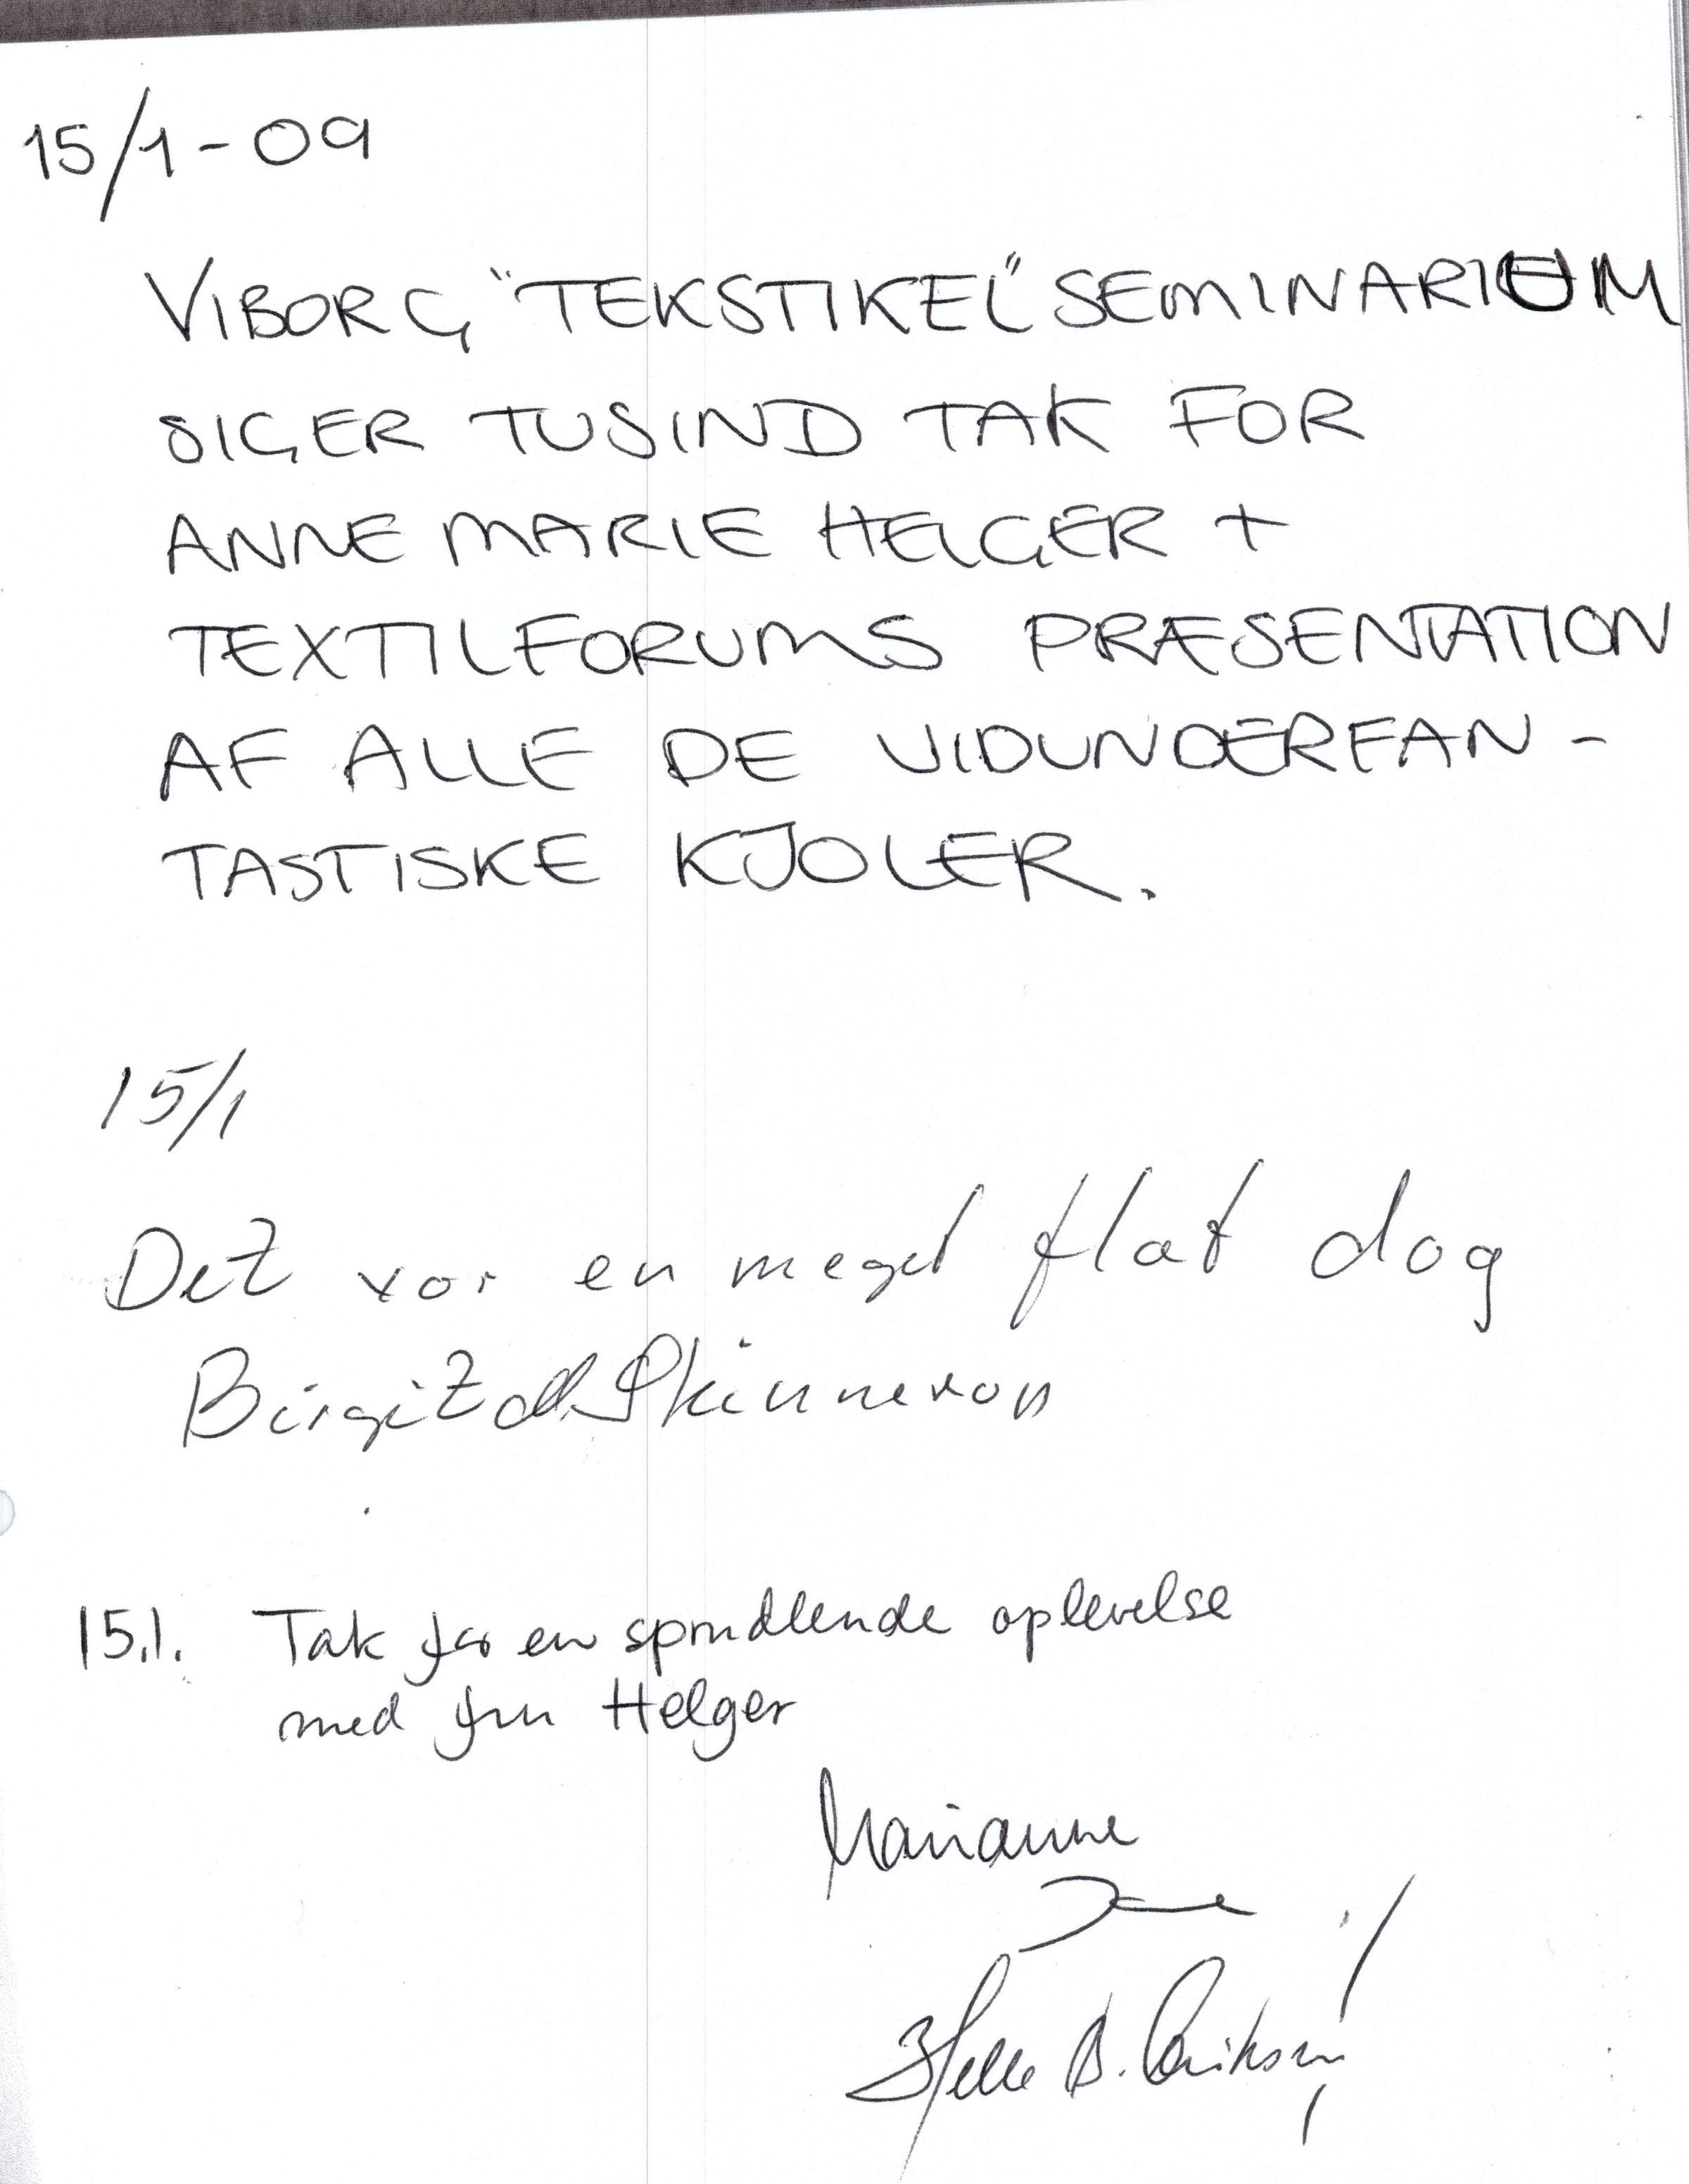 15/1-09
VIBORG "TEKSTIKEL" SEMINARIUM
SIGER TUSIND TAK FOR
ANNE MARIE HELGER +
TEXTILFORUMS PRÆSENTATION
AF ALLE DE VIDUNDERFAN-
TASTISKE KJOLER.
15/1
Det var en meget flot dag
Birgit Skinnerop
15.1. Tak for en sprudlende oplevelse
med fru Helger
Marianne
Helle B. Eriksen